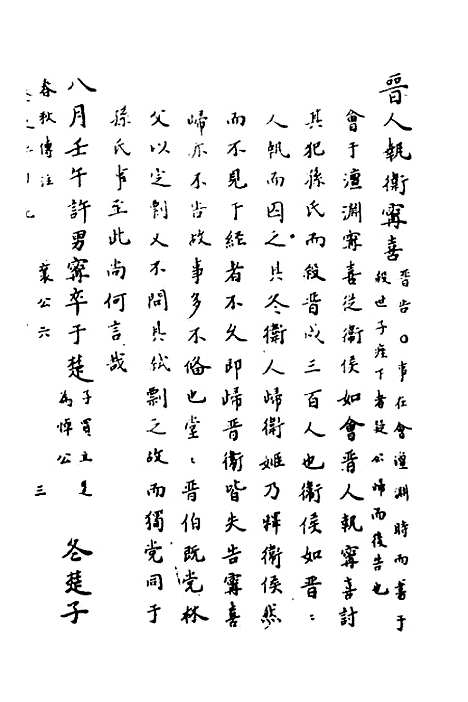 晋人執衛寗喜 晋告○事在會澶淵時而書于
殺世子痤下者疑公歸而後告也
會于澶淵寗喜從衛侯如會晋人執寗喜討
其犯孫氏而殺晋戍三百人也衛侯如晋〻
人執而囚之其冬衛人歸衛姬乃釋衛侯然
而不見于經者不久即歸晋衛皆失告寗喜
歸亦不告故事多不俻也堂〻晋伯既党林
父以定剽又不問其弑剽之故而獨党同于
孫氏事至此尚何言哉
八月壬午許男寗卒于楚 子買立是
為悼公 冬楚子
春秋傳注 襄公六 三